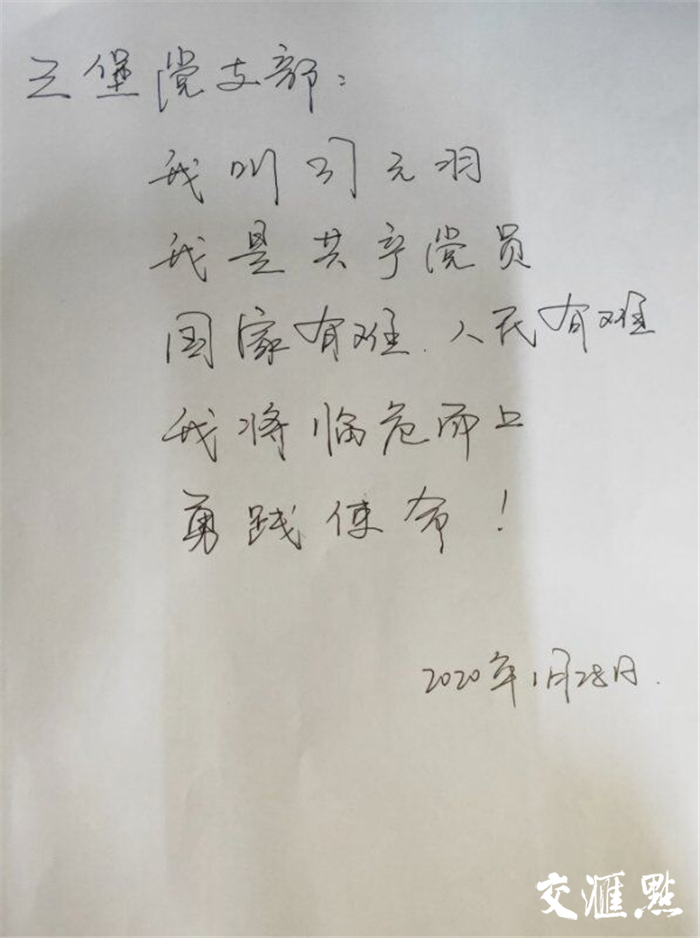 三堡党支部：
我叫刘元羽
我是共产党员
国家有难.人民有难
我将临危而上
勇践使命！
2020年1月28日.
交汇點